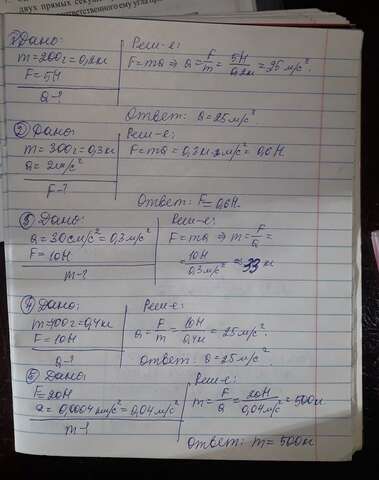 двух прямых секущ
ответственного ему угла пр
1) Дано:
m=200г=0,2кг
F=5Н
a-?
Реш-е:
F=ma ⇒ a=F/m=5Н/0,2кг=25м/с².
Ответ: a=25м/с²
② Дано:
m=300г=0,3кг
a=2м/с²
F-?
Реш-е:
F=ma=0,3кг·2м/с²=0,6Н.
Ответ: F=0,6Н.
③ Дано:
a=30см/с²=0,3м/с²
F=10Н
m-?
Реш-е:
F=ma ⇒ m=F/a=
=10Н/0,3м/с²≈33кг
④ Дано:
m=400г=0,4кг
F=10Н
a-?
Реш-е:
a=F/m=10Н/0,4кг=25м/с².
Ответ: a=25м/с².
⑤ Дано:
F=20Н
a=0,0004км/с²=0,04м/с²
m-?
Реш-е:
m=F/a=20Н/0,04м/с²=500кг
Ответ: m=500кг